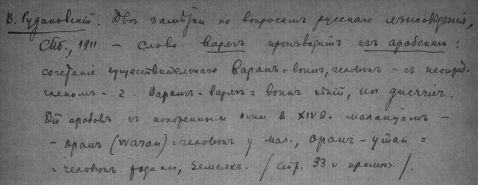 В. Рудановский. Две заметки по вопросам русскаго языковѣдѣнія,
СПб., 1911 – слово варягъ производитъ из арабскаго:
сочетаніе существительнаго Варанъ = воинъ, человѣкъ – съ неопред.
членомъ – г. Варангъ = варягъ = воинъ
Отъ арабовъ къ покореннымъ ими в XIV в. малайцамъ –
– оранъ (waran) = человѣкъ у мал., оранъ-утанъ =
= человѣкъ землякъ. / стр. 33 и примѣч. /.